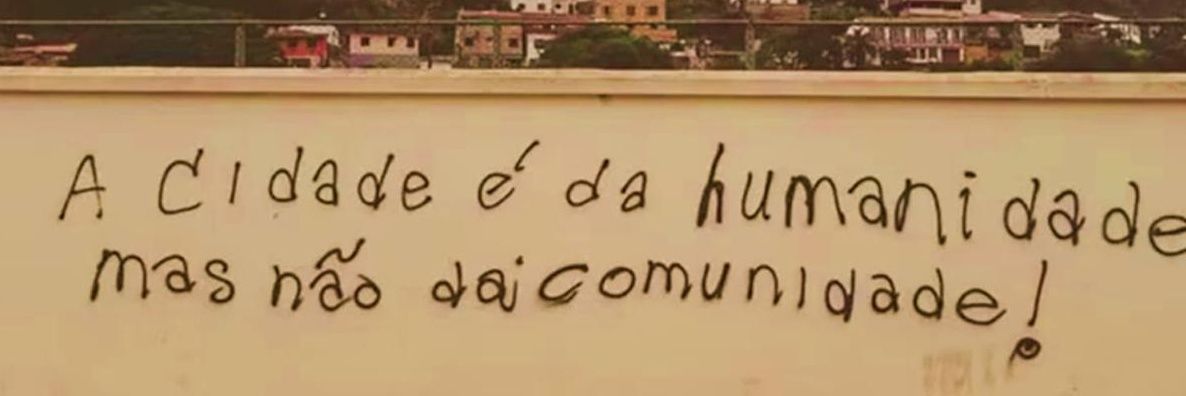 A Cidade é da humanidade
mas não da comunidade!